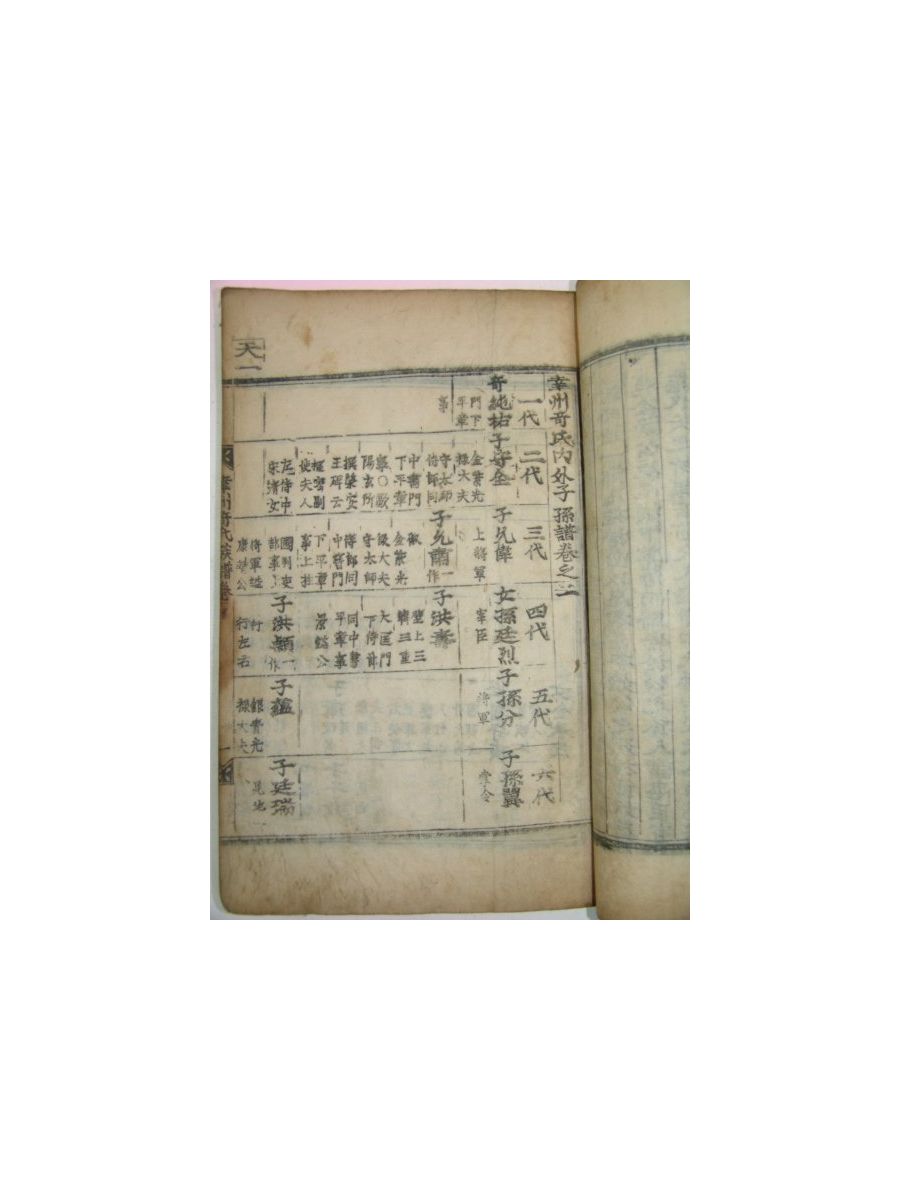 幸州奇氏內外子孫譜卷之一
一代
二代
三代
四代
五代
六代
奇純祐
門下
平章
事
子守全
金紫光
祿大夫
守太師
侍郎同
中書門
下平章
事○歐
陽玄所
撰榮安
王碑云
樞密副
使夫人
左侍中
宋清女
子允偉
上將軍
子允肅
一作
金紫光
祿大夫
守太師
侍郎同
中書門
下平章
事上柱
國判吏
部事
將軍
康靖公
女孫廷烈
宰臣
子洪壽
壁上三
韓三重
大匡門
下侍郎
同中書
平章事
子洪頴
一作
行左右
子孫分
將軍
子蘊
銀青光
祿大夫
子孫翼
堂令
子廷瑞
天一
幸州奇氏族譜卷